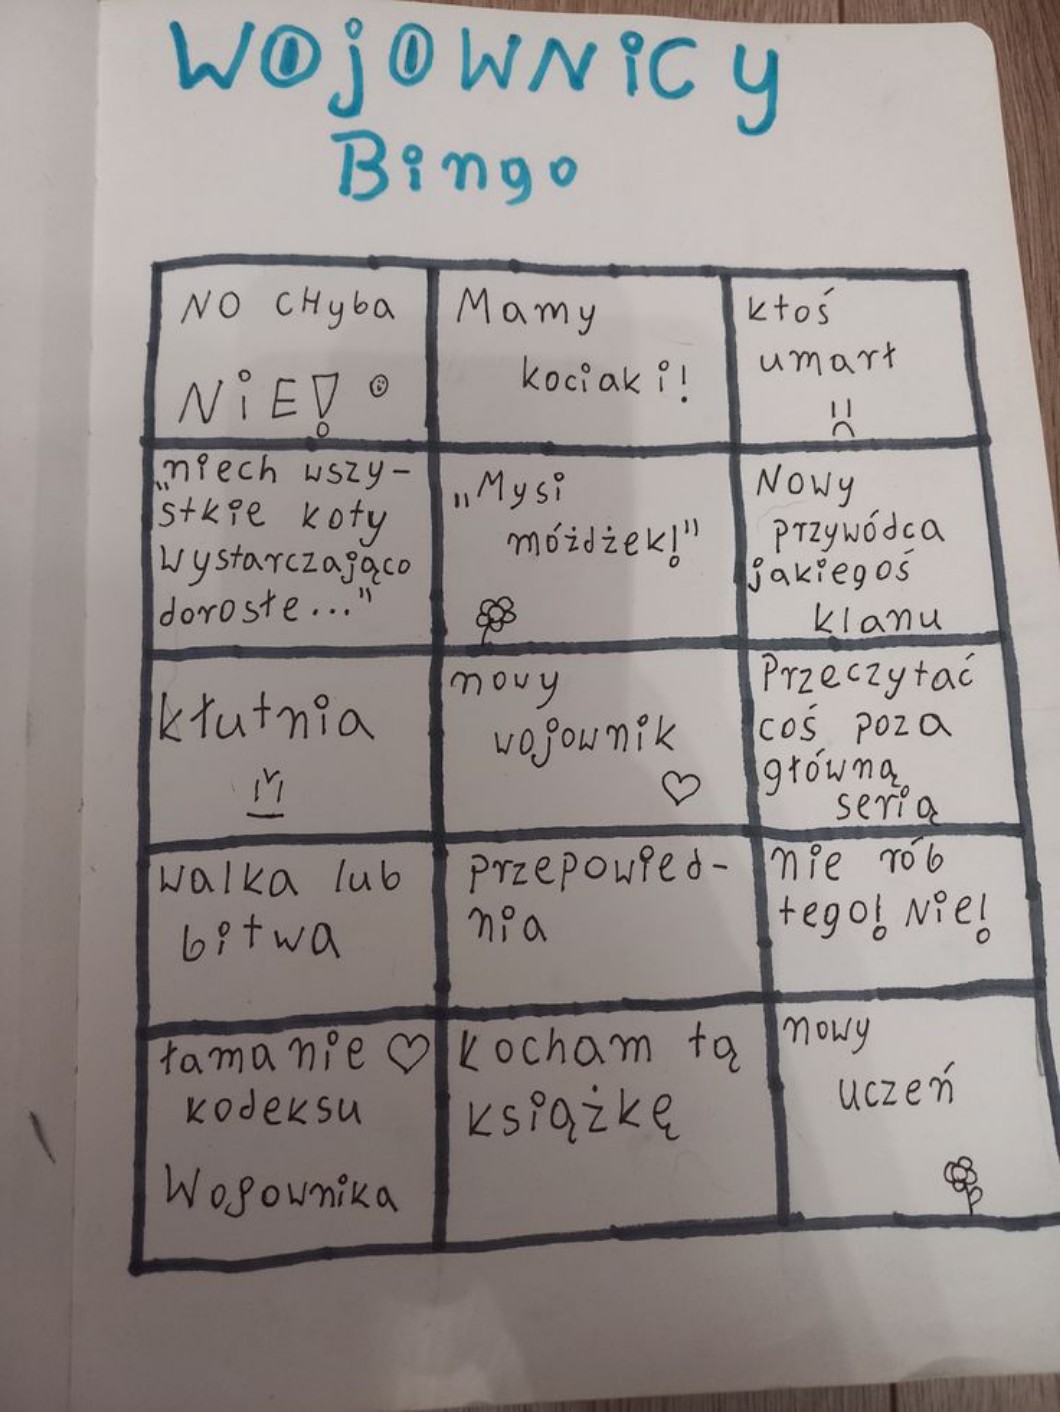 WOJOWNiCY
Bingo
NO CHyba
NiE!
Mamy
kociaki!
ktoś
umarł
„niech wszy-
stkie koty
wystarczająco
dorosłe..."
„Mysi
móżdżek!"
Nowy
przywódca
jakiegoś
klanu
kłutnia
nowy
wojownik
Przeczytać
coś poza
główną
serią
walka lub
bitwa
przepowied-
nia
nie rób
tego! Nie!
łamanie
kodeksu
Wojownika
kocham tą
książkę
nowy
uczeń